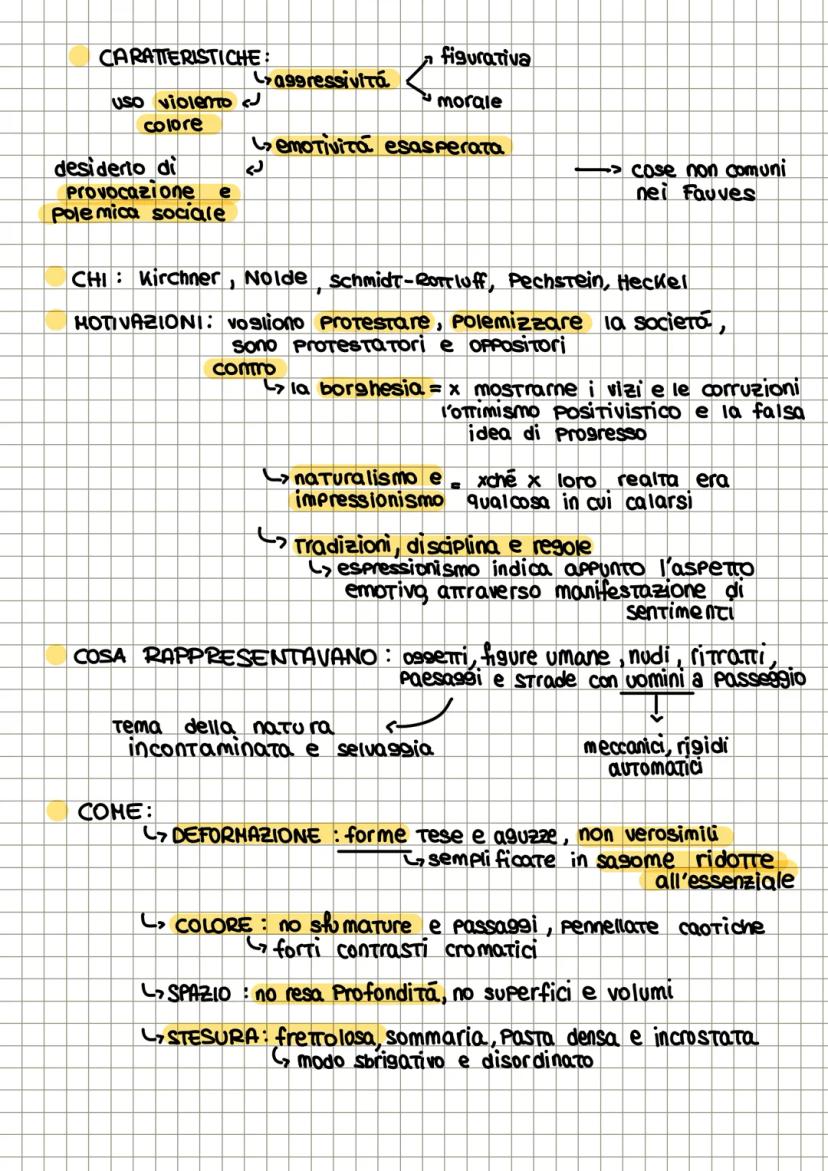 CARATTERISTICHE:
↳ aggressivitá
figurativa
morale
uso violento
colore
↳ emotivitá esasperata
desiderio di
provocazione e
polemica sociale
→ cose non comuni
nei Fauves
CHI: Kirchner, Nolde, Schmidt-Rottluff, Pechstein, Heckel
MOTIVAZIONI: vogliono protestare, polemizzare la societá,
sono protestatori e oppositori
contro
↳ la borghesia = x mostrarne i vizi e le corruzioni
l'ottimismo positivistico e la falsa
idea di progresso
↳ naturalismo e = xché x loro realta era
impressionismo qualcosa in cui calarsi
↳ tradizioni, disciplina e regole
↳ espressionismo indica appunto l'aspetto
emotivo, attraverso manifestazione di
sentimenti
COSA RAPPRESENTAVANO: oggetti, figure umane, nudi, ritratti,
paesaggi e strade con uomini a passeggio
tema della natura
incontaminata e selvaggia
meccanici, rigidi
automatici
COME:
↳ DEFORMAZIONE: forme tese e aguzze, non verosimili
↳ semplificate in sagome ridotte
all'essenziale
↳ COLORE: no sfumature e passaggi, pennellate caotiche
↳ forti contrasti cromatici
↳ SPAZIO: no resa profonditá, no superfici e volumi
↳ STESURA: frettolosa, sommaria, pasta densa e incrostata
↳ modo sbrigativo e disordinato